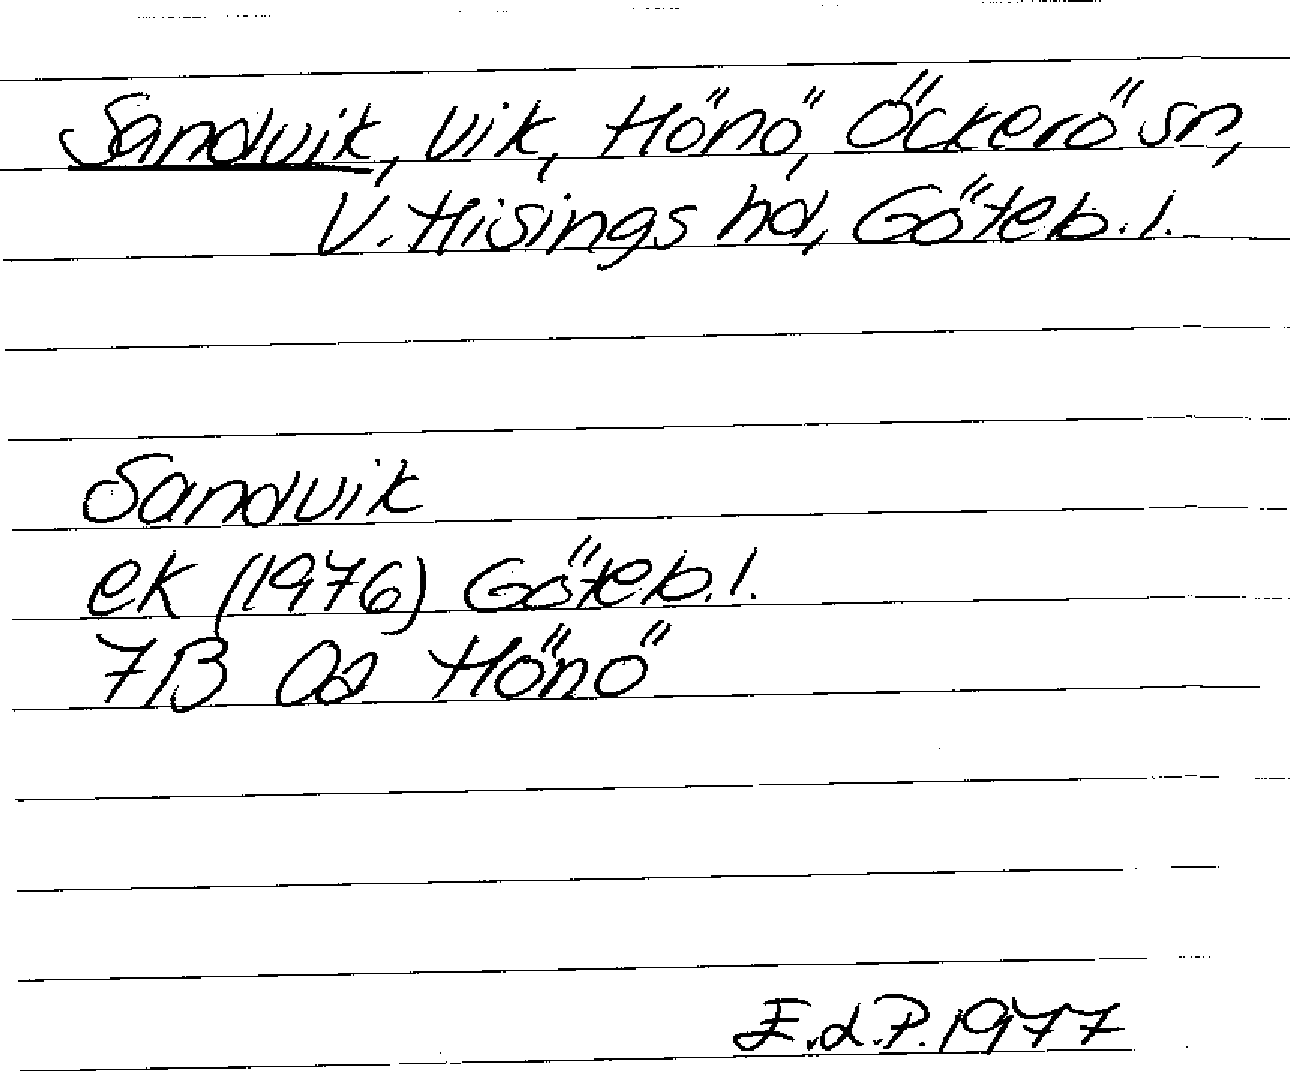 Sandvik, vik, Hönö, Öckerö sn,
V. Hisings hd, Göteb. l.
Sandvik
ek (1976) Göteb. l.
7B 0a Hönö
E.d.P. 1977